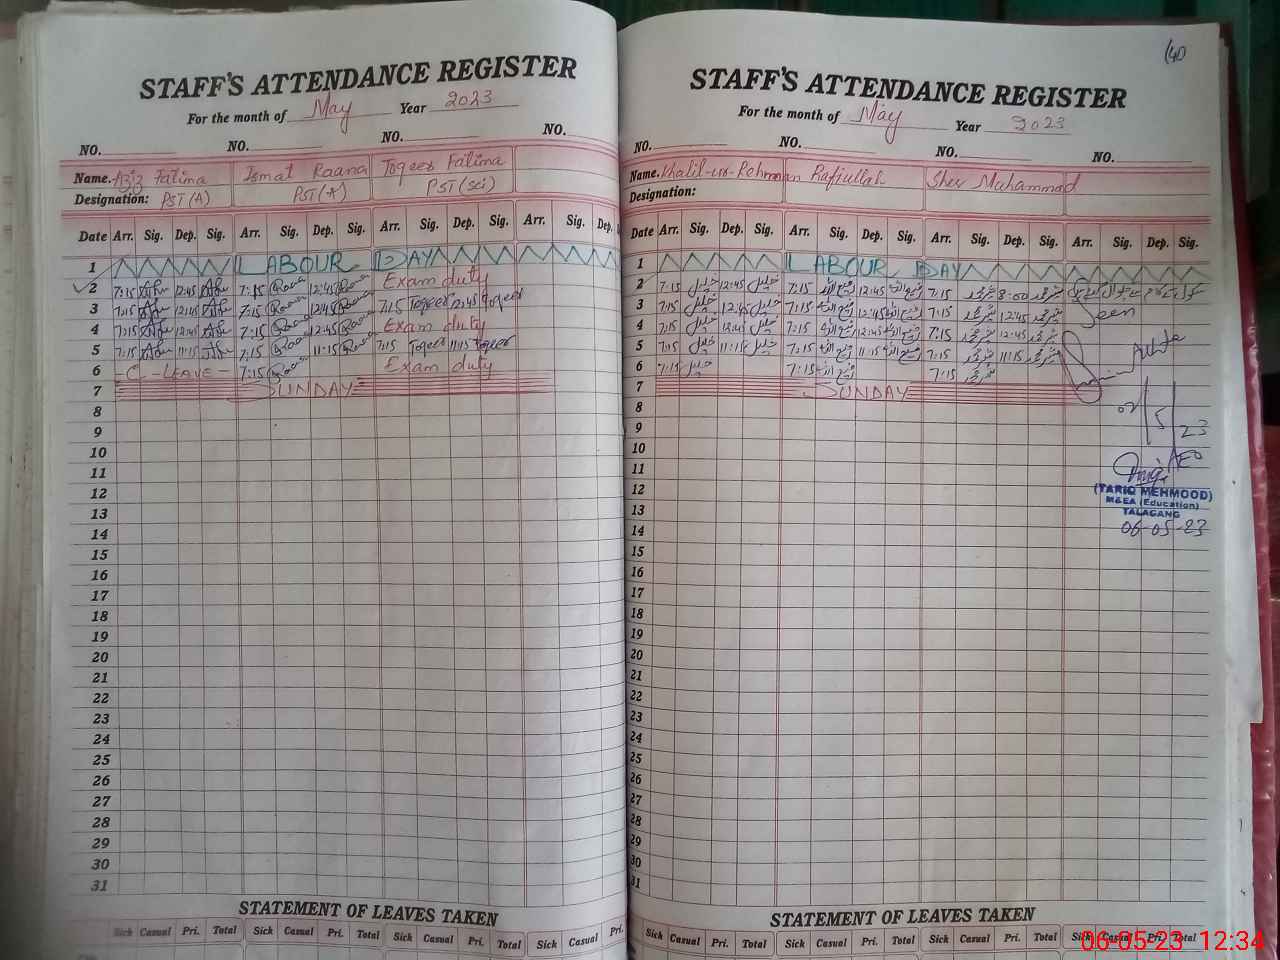 STAFF'S ATTENDANCE REGISTER
For the month of May Year 2023
NO. NO. NO. NO.
Name. Aziz Fatima Ismat Raana Toqeer Fatima
Designation: PST (A) PST (A) PST (Sci)
Date Arr. Sig. Dep. Sig. Arr. Sig. Dep. Sig. Arr. Sig. Dep. Sig. Arr. Sig. Dep.
1 LABOUR DAY
2 7:15 12:45 7:15 Raana 12:45 Raana Exam duty
3 7:15 12:45 7:15 Raana 12:45 Raana 7:15 Toqeer 12:45 Toqeer
4 7:15 12:45 7:15 Raana 12:45 Raana Exam duty
5 7:15 11:15 7:15 Raana 11:15 Raana 7:15 Toqeer 11:15 Toqeer
6 - C - LEAVE - 7:15 Raana Exam duty
7 SUNDAY
8
9
10
11
12
13
14
15
16
17
18
19
20
21
22
23
24
25
26
27
28
29
30
31
STATEMENT OF LEAVES TAKEN
Sick Casual Pri. Total Sick Casual Pri. Total Sick Casual Pri. Total Sick Casual Pri.
STAFF'S ATTENDANCE REGISTER
For the month of May Year 2023
NO. NO. NO. NO.
Name. Khalil-ur-Rehman Rafiullah Sher Muhammad
Designation:
Date Arr. Sig. Dep. Sig. Arr. Sig. Dep. Sig. Arr. Sig. Dep. Sig. Arr. Sig. Dep. Sig.
1 LABOUR DAY
2 7:15 خلیل 12:45 خلیل 7:15 12:45 7:15 شیر محمد 8:00 شیر محمد
3 7:15 خلیل 12:45 خلیل 7:15 12:45 7:15 شیر محمد 12:45 شیر محمد Seen
4 7:15 خلیل 12:45 خلیل 7:15 12:45 7:15 شیر محمد 12:45 شیر محمد
5 7:15 خلیل 11:15 خلیل 7:15 11:15 7:15 شیر محمد 11:15 شیر محمد
6 7:15 خلیل 7:15 7:15 شیر محمد
7 SUNDAY
8
02/5/23
9
10
11
AEO
12
(TARIQ MEHMOOD)
M&EA (Education)
13
TALAGANG
06-05-23
14
15
16
17
18
19
20
21
22
23
24
25
26
27
28
29
30
31
STATEMENT OF LEAVES TAKEN
Sick Casual Pri. Total Sick Casual Pri. Total Sick Casual Pri. Total Sick Casual Pri. Total
06-05-23 12:34